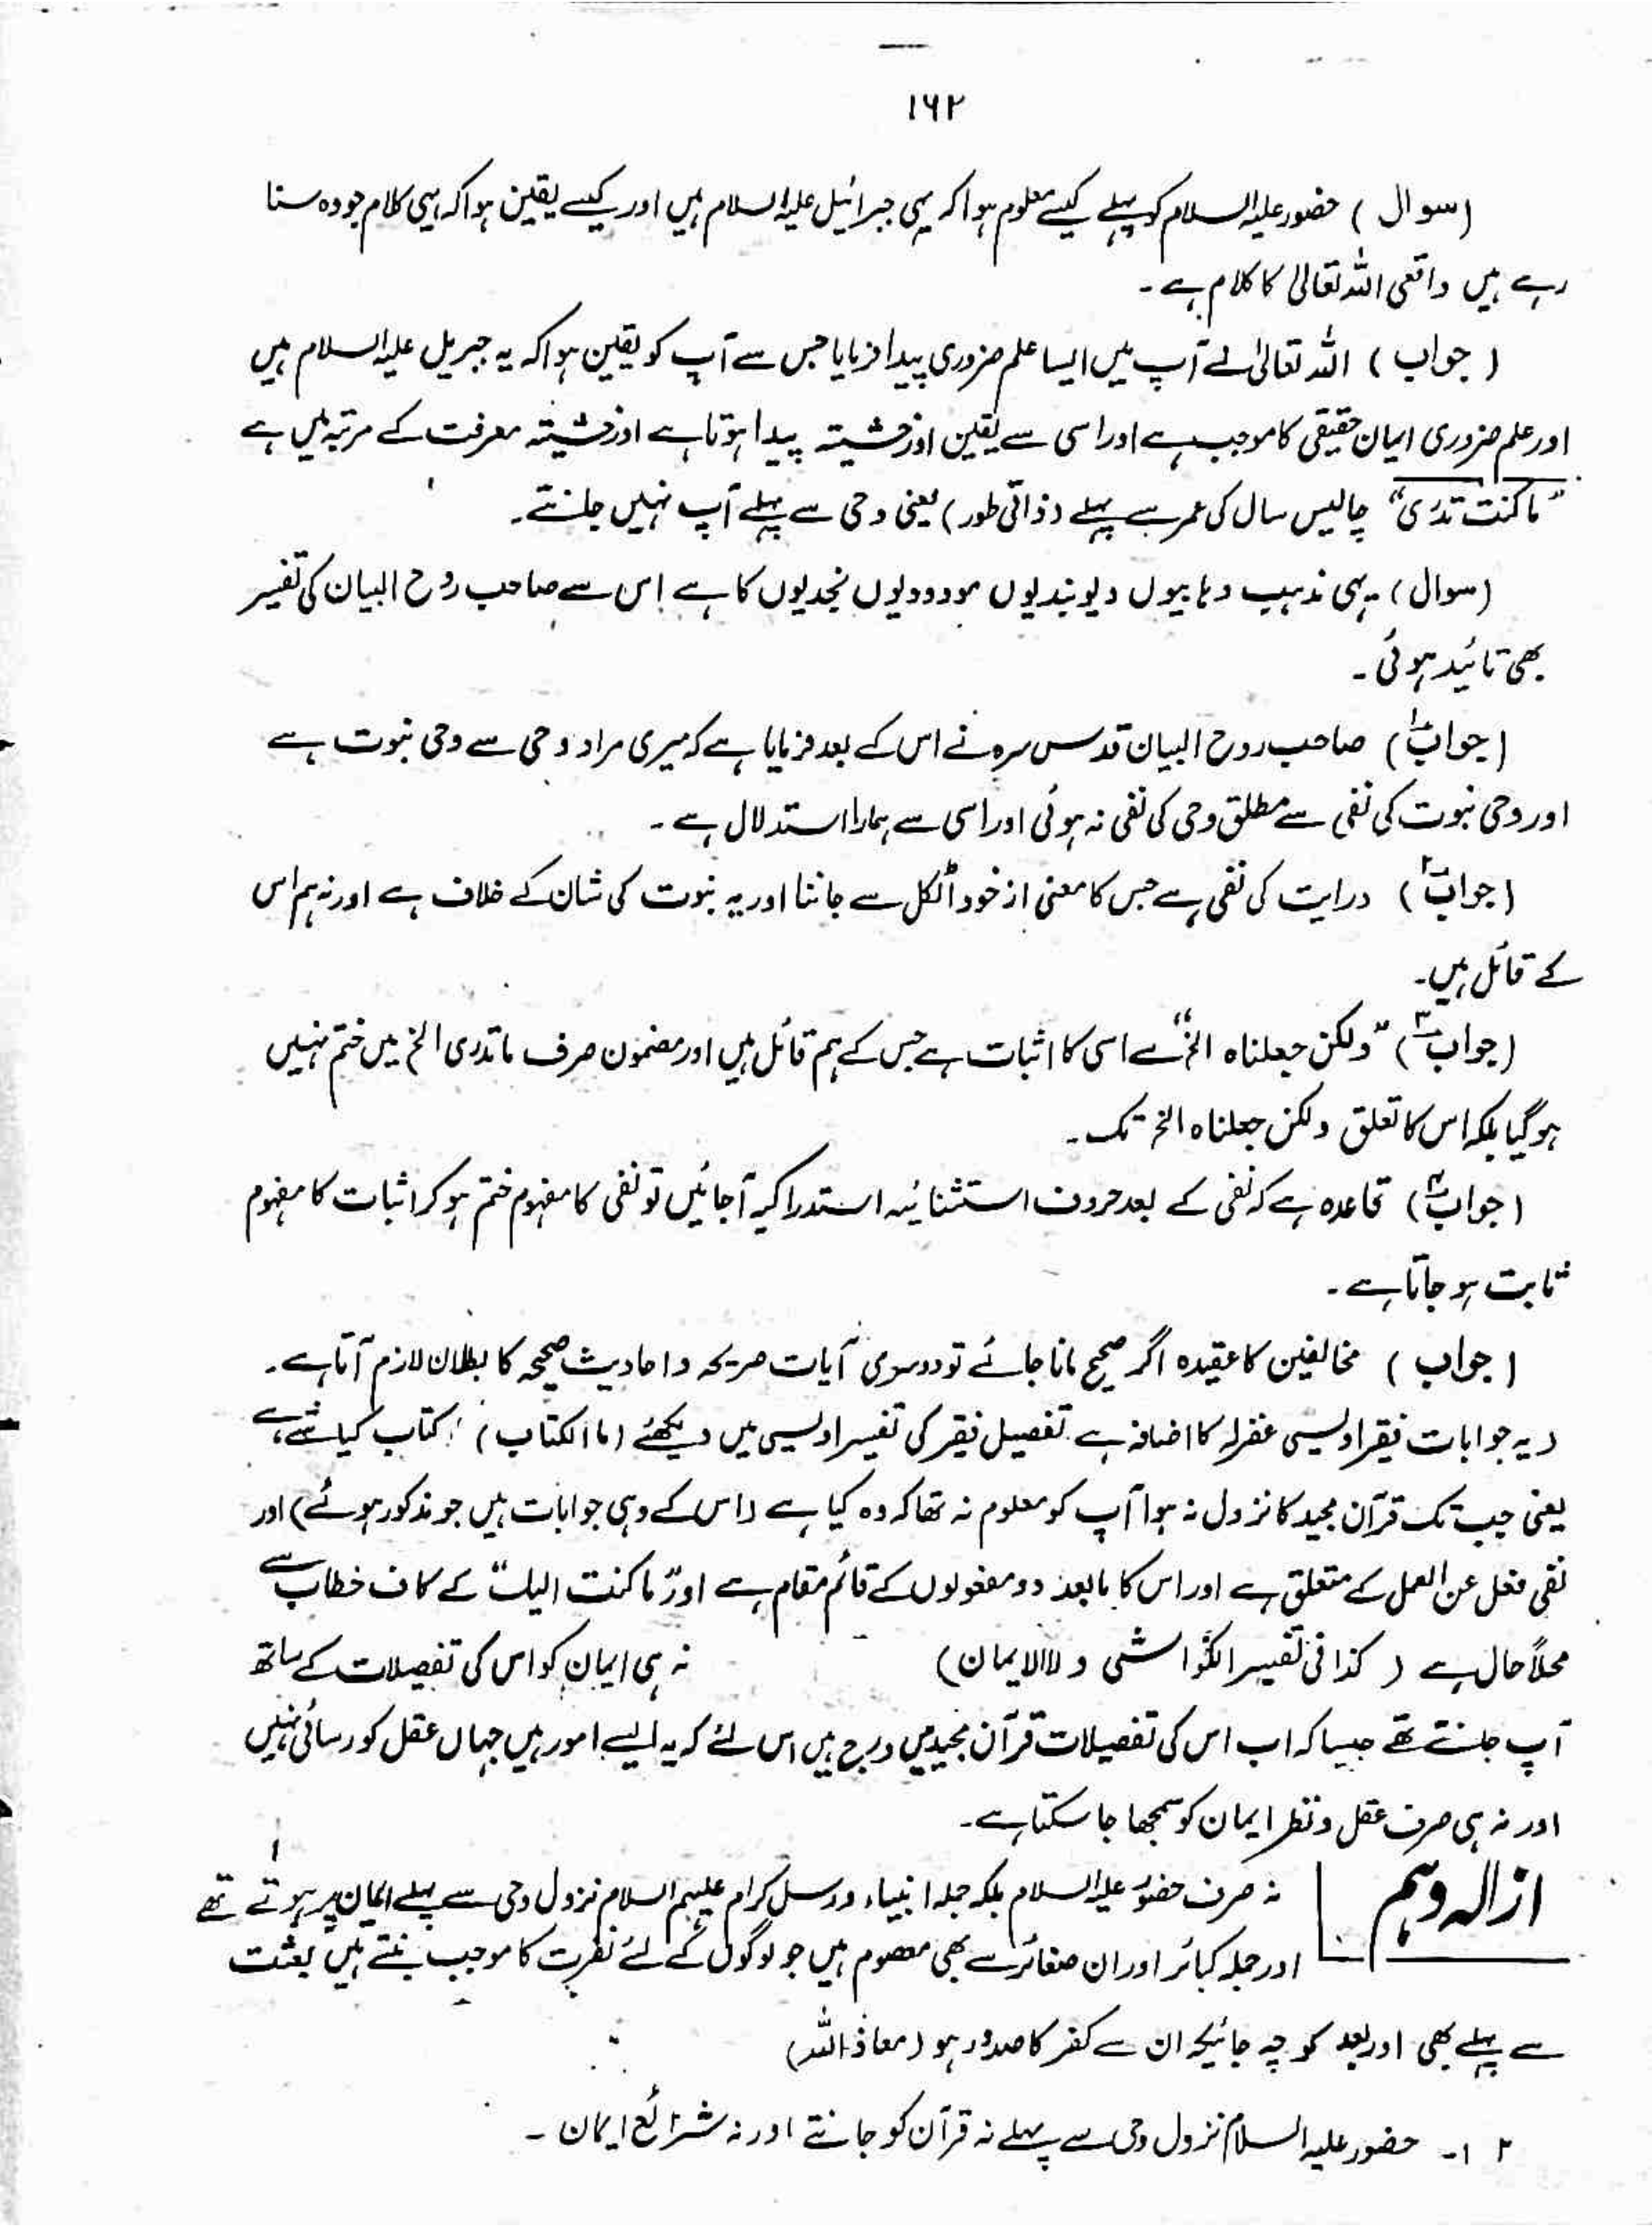 ۱۶۲
(سوال) حضور علیہ السلام کو پہلے کیسے معلوم ہوا کہ یہی جبرائیل علیہ السلام ہیں اور کیسے یقین ہوا کہ یہی کلام جو وہ سنا
رہے ہیں واقعی اللہ تعالیٰ کا کلام ہے۔
(جواب) اللہ تعالیٰ نے آپ میں ایسا علم ضروری پیدا فرمایا جس سے آپ کو یقین ہوا کہ یہ جبریل علیہ السلام ہیں
اور علم ضروری ایمان حقیقی کا موجب ہے اور اسی سے یقین اور خشیتہ پیدا ہوتا ہے اور خشیتہ معرفت کے مرتبہ میں ہے
"ما کنت تدری" چالیس سال کی عمر سے پہلے (ذاتی طور) یعنی وحی سے پہلے آپ نہیں جانتے۔
(سوال) یہی مذہب وہابیوں دیوبندیوں مودودیوں نجدیوں کا ہے اس سے صاحب روح البیان کی تفسیر
بھی تائید ہوئی۔
(جواب ۱) صاحب روح البیان قدس سرہ نے اس کے بعد فرمایا ہے کہ میری مراد وحی سے وحی نبوت ہے
اور وحی نبوت کی نفی سے مطلق وحی کی نفی نہ ہوئی اور اسی سے ہمارا استدلال ہے۔
(جواب ۲) درایت کی نفی ہے جس کا معنی از خود اٹکل سے جاننا اور یہ نبوت کی شان کے خلاف ہے اور نہ ہم اس
کے قائل ہیں۔
(جواب ۳) "ولکن جعلناہ الخ" سے اسی کا اثبات ہے جس کے ہم قائل ہیں اور مضمون صرف ما تدری الخ میں ختم نہیں
ہو گیا بلکہ اس کا تعلق ولکن جعلناہ الخ تک۔
(جواب ۴) قاعدہ ہے کہ نفی کے بعد حروف استثنائیہ استدراکیہ آجائیں تو نفی کا مفہوم ختم ہو کر اثبات کا مفہوم
ثابت ہو جاتا ہے۔
(جواب) مخالفین کا عقیدہ اگر صحیح مانا جائے تو دوسری آیات صریحہ و احادیث صحیحہ کا بطلان لازم آتا ہے۔
(یہ جوابات فقیر اویسی غفرلہ کا اضافہ ہے تفصیل فقیر کی تفسیر اویسی میں دیکھئے (ما الکتاب) کتاب کیا شے ہے
یعنی جب تک قرآن مجید کا نزول نہ ہوا آپ کو معلوم نہ تھا کہ وہ کیا ہے (اس کے وہی جوابات ہیں جو مذکور ہوئے) اور
نفی فعل عن العمل کے متعلق ہے اور اس کا مابعد دو مفعولوں کے قائم مقام ہے اور "ما کنت الیک" کے کاف خطاب سے
محلاً حال ہے (کذا فی تفسیر الکواشی ولا الایمان) نہ ہی ایمان کو اس کی تفصیلات کے ساتھ
آپ جانتے تھے جیسا کہ اب اس کی تفصیلات قرآن مجید میں درج ہیں اس لئے کہ یہ ایسے امور ہیں جہاں عقل کو رسائی نہیں
اور نہ ہی صرف عقل و نظر ایمان کو سمجھا جا سکتا ہے۔
ازالہ وہم
نہ صرف حضور علیہ السلام بلکہ جملہ انبیاء و رسل کرام علیہم السلام نزول وحی سے پہلے ایمان پر ہوتے تھے
اور جملہ کبائر اور ان صغائر سے بھی معصوم ہیں جو لوگوں کے لئے نفرت کا موجب بنتے ہیں بعثت
سے پہلے بھی اور بعد کو چہ جائیکہ ان سے کفر کا صدور ہو (معاذ اللہ)
۲ ۱۔ حضور علیہ السلام نزول وحی سے پہلے نہ قرآن کو جانتے اور نہ شرائع ایمان۔